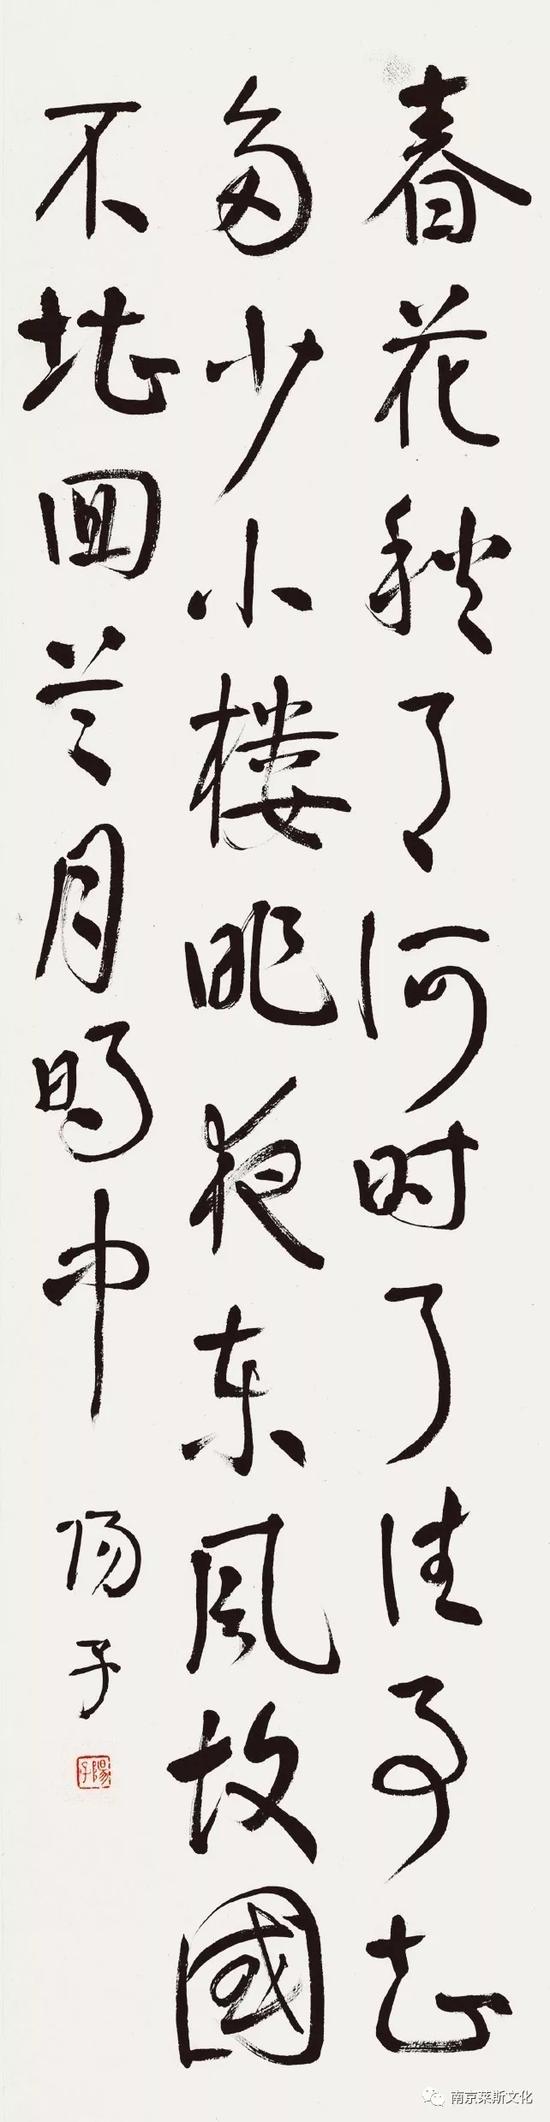 春花秋月何时了往事知
多少小楼昨夜东风故國
不堪回首月明中
陽子
陽子
南京莱斯文化